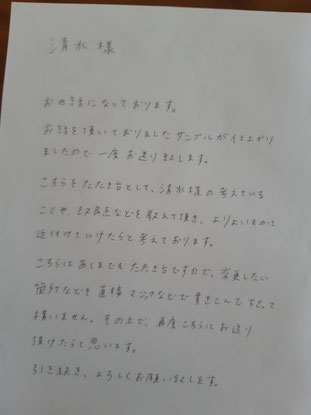 清水様
お世話になっております。
お話を頂いておりましたサンプルが仕上がり
ましたので一度お送り致します。
こちらをたたき台として、清水様の考えている
ことや、改良点などを教えて頂き、よりよいものに
近付けていけたらと考えております。
こちらはあくまでもたたき台ですので、変更したい
箇所などを直接マジックなどで書きこんで下さって
構いません。その上で、再度こちらにお送り
頂けたらと思います。
引き続き、よろしくお願い致します。